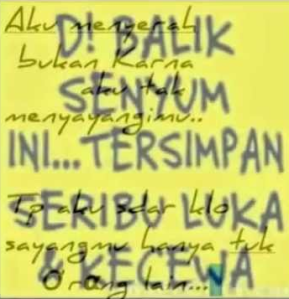 Aku menyerah
bukan Karna
aku tak
menyayangimu..
Tp aku sdar klo
sayangmu hanya tuk
Orang lain...
D! BALIK
SENYUM
INI...TERSIMPAN
SERIBU LUKA
& KECEWA